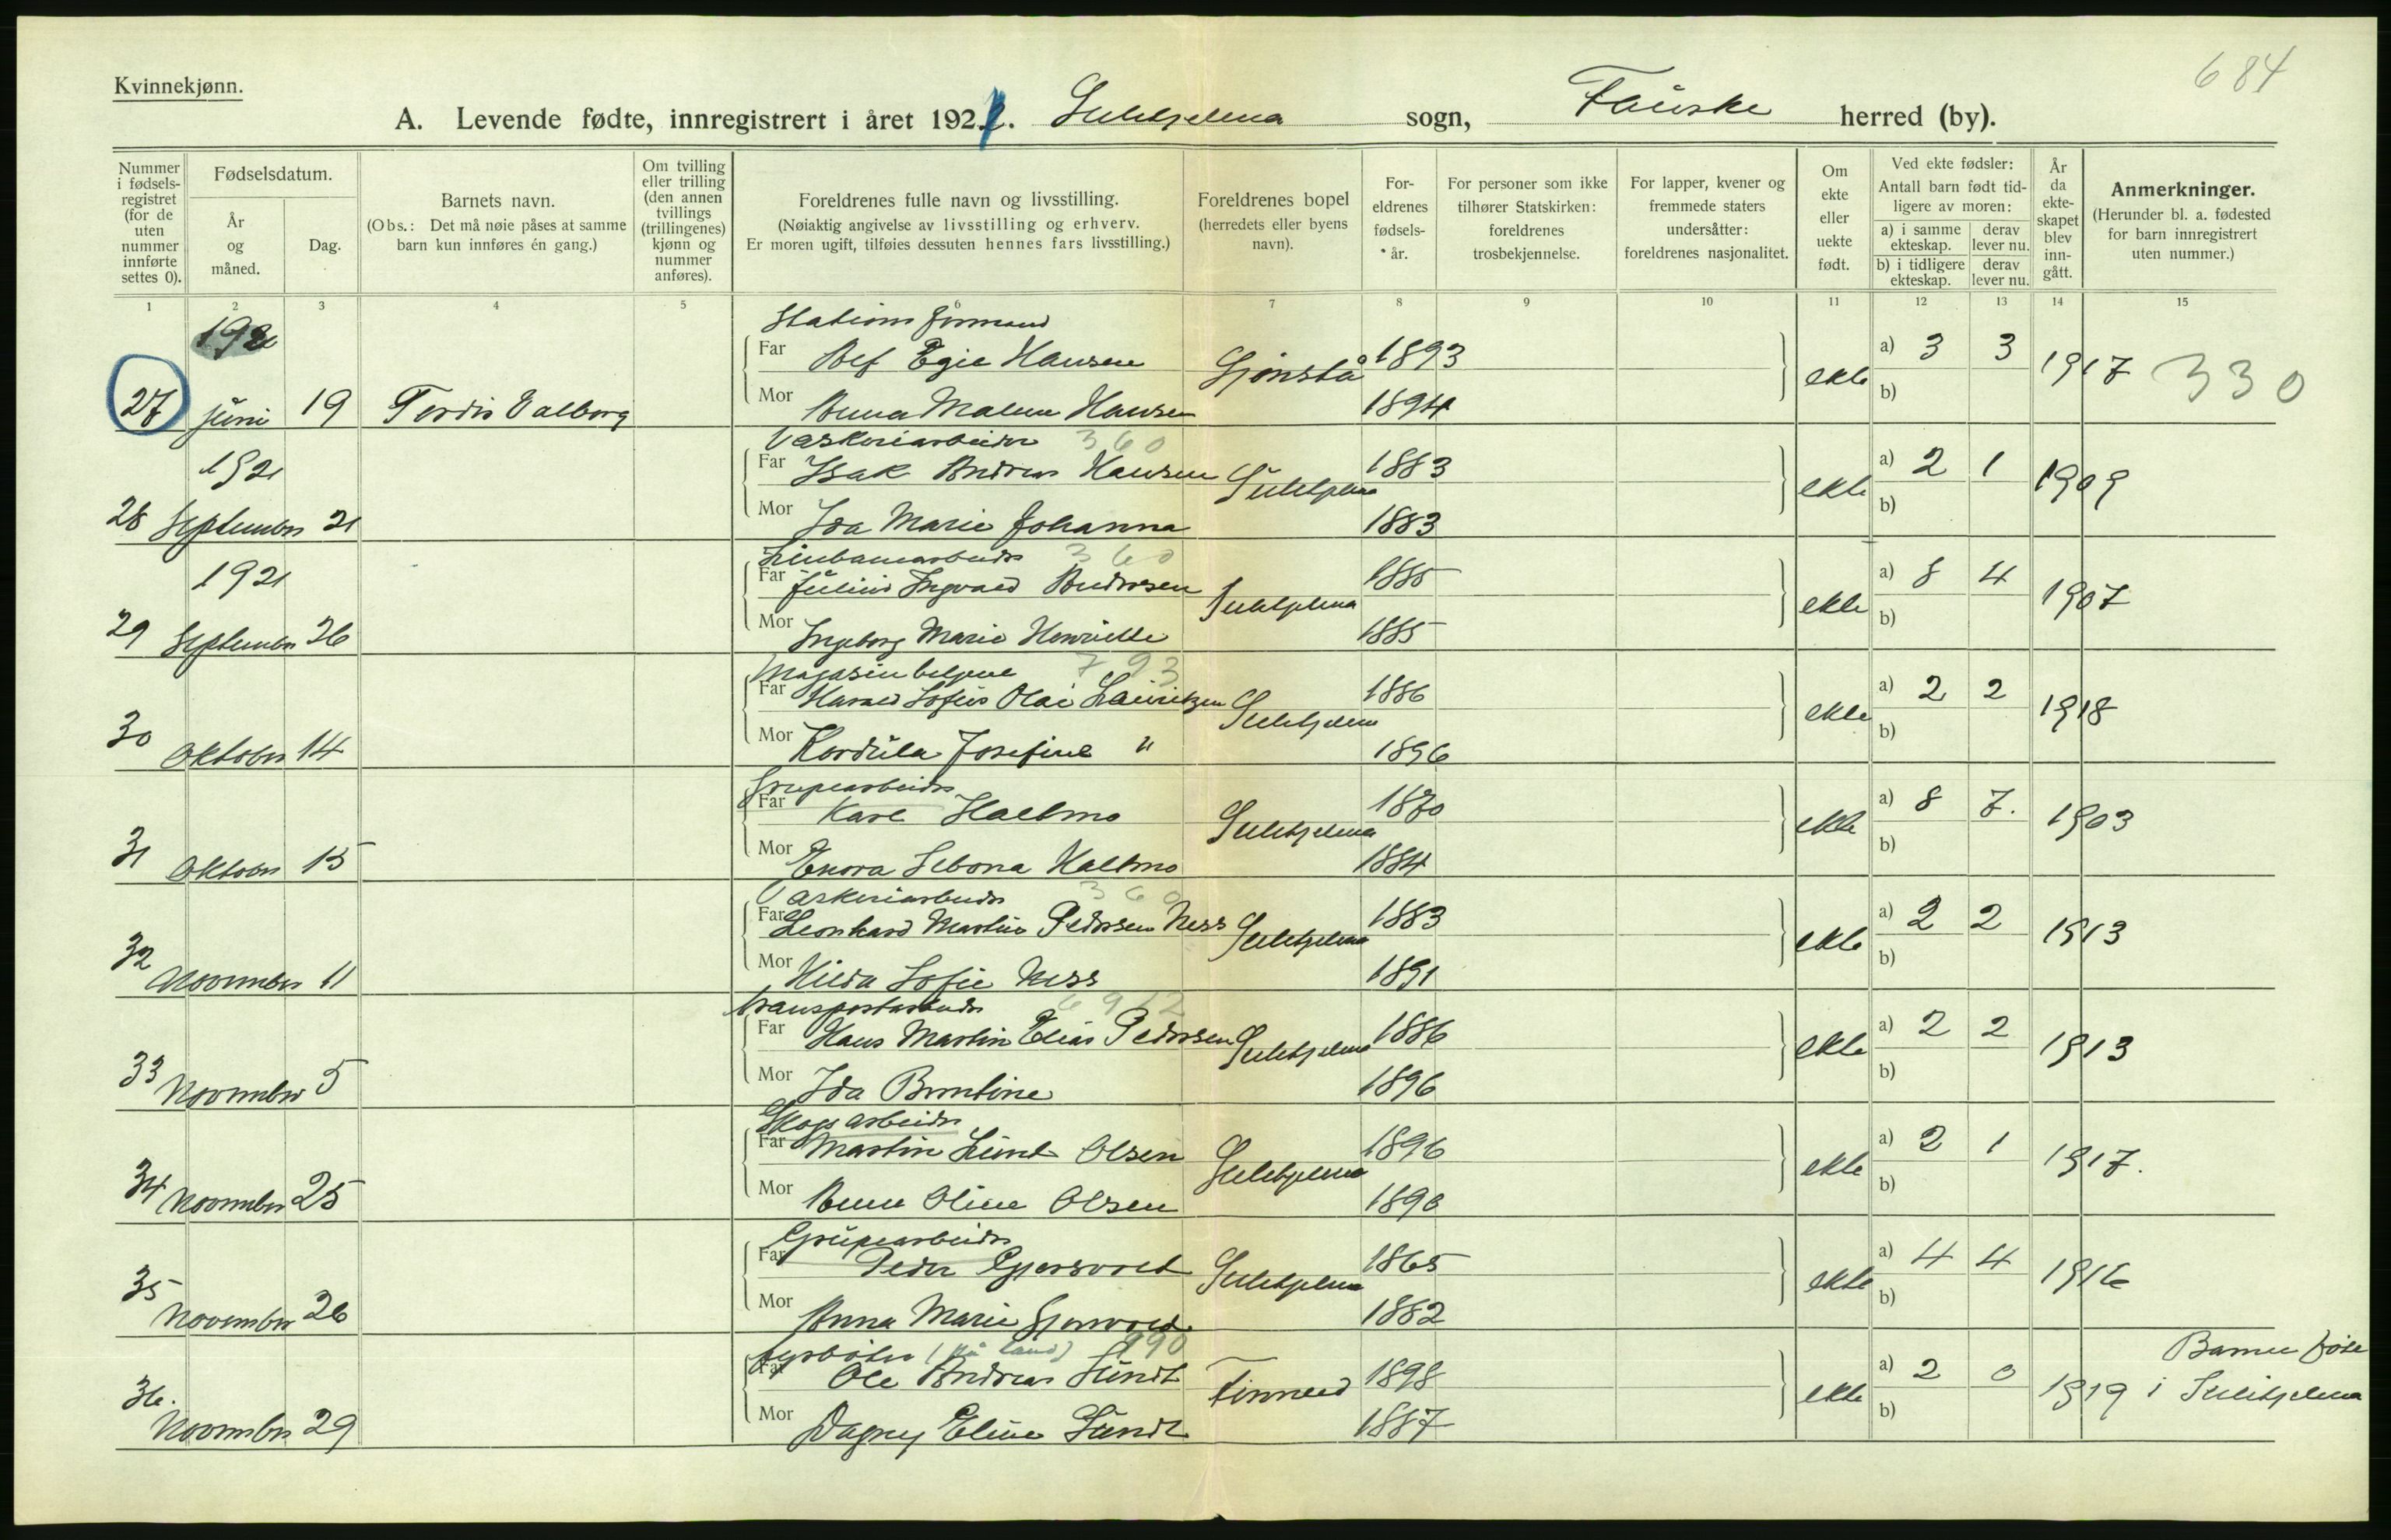 684
Kvinnekjønn.
A. Levende fødte, innregistrert i året 1921. Sulitjelma sogn, Fauske herred (by).
Nummer i fødsels-registret (for de uten nummer innførte settes 0).
Fødselsdatum.
År og måned.
Dag.
Barnets navn.
(Obs.: Det må nøie påses at samme barn kun innføres én gang.)
Om tvilling eller trilling (den annen tvillings (trillingenes) kjønn og nummer anføres).
Foreldrenes fulle navn og livsstilling.
(Nøiaktig angivelse av livsstilling og erhverv.
Er moren ugift, tilføies dessuten hennes fars livsstilling.)
Foreldrenes bopel
(herredets eller byens navn).
For-eldrenes fødsels-år.
For personer som ikke tilhører Statskirken: foreldrenes trosbekjennelse.
For lapper, kvener og fremmede staters undersåtter: foreldrenes nasjonalitet.
Om ekte eller uekte født.
Ved ekte fødsler:
Antall barn født tid-ligere av moren:
a) i samme ekteskap.
derav lever nu.
b) i tidligere ekteskap.
derav lever nu.
År da ekte-skapet blev inn-gått.
Anmerkninger.
(Herunder bl. a. fødested for barn innregistrert uten nummer.)
1 2 3 4 5 6 7 8 9 10 11 12 13 14 15
1921
Stations formand
Far Alf Egil Hansen Gjönså 1893 a) 3 3
27 juni 19 Tordis Valborg ekte 1917 330
Mor Anna Malene Hansen 1894 b)
Vaskeriarbeider 360
1921 Far Isak Andreas Hansen Sulitjelma 1883 a) 2 1
28 September 21 ekte 1909
Mor Ida Marie Johanna 1883 b)
Linbanearbeider 360
1921 Far Julius Ingvald Andersen Sulitjelma 1885 a) 8 4
29 September 26 ekte 1907
Mor Ingeborg Marie Henriette 1885 b)
Magasinbetjent 793
Far Harald Sofus Olai Lauritzen Sulitjelma 1886 a) 2 2
30 Oktober 14 ekte 1918
Mor Kordula Josefine " 1896 b)
Grupearbeider
Far Karl Hallmo Sulitjelma 1870 a) 8 7.
31 Oktober 15 ekte 1903
Mor Enora Sebona Hallmo 1884 b)
Vaskeriarbeider 360
Far Leonhard Martin Pedersen Ness Sulitjelma 1883 a) 2 2
32 November 11 ekte 1913
Mor Hilda Sofie Ness 1891 b)
transportarbeider
Far Hans Martin Elias Pedersen Sulitjelma 1886 a) 2 2
33 November 5 ekte 1913
Mor Ida Berntine 1896 b)
Skogsarbeider
Far Martin Lund Olsen Sulitjelma 1896 a) 2 1
34 November 25 ekte 1917.
Mor Anna Oline Olsen 1890 b)
Grupearbeider
Far Peder Gjersvold Sulitjelma 1865 a) 4 4
35 November 26 ekte 1916
Mor Anna Marie Gjersvold 1882 b)
fyrbøter (på land) 990
Far Ole Andreas Lundt Finneid 1898 a) 2 0 Barnet født
36. November 29 ekte 1919 i Sulitjelma
Mor Dagny Eline Lundt 1887 b)